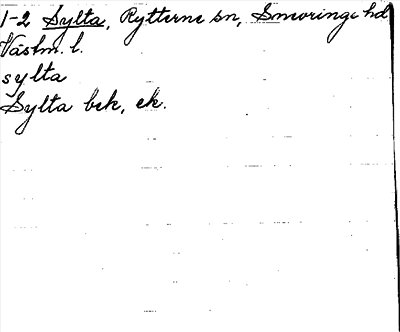 1-2 Sylta, Rytterne sn, Snevringe hd
Västm. l.
sylta
Sylta bek, ek.